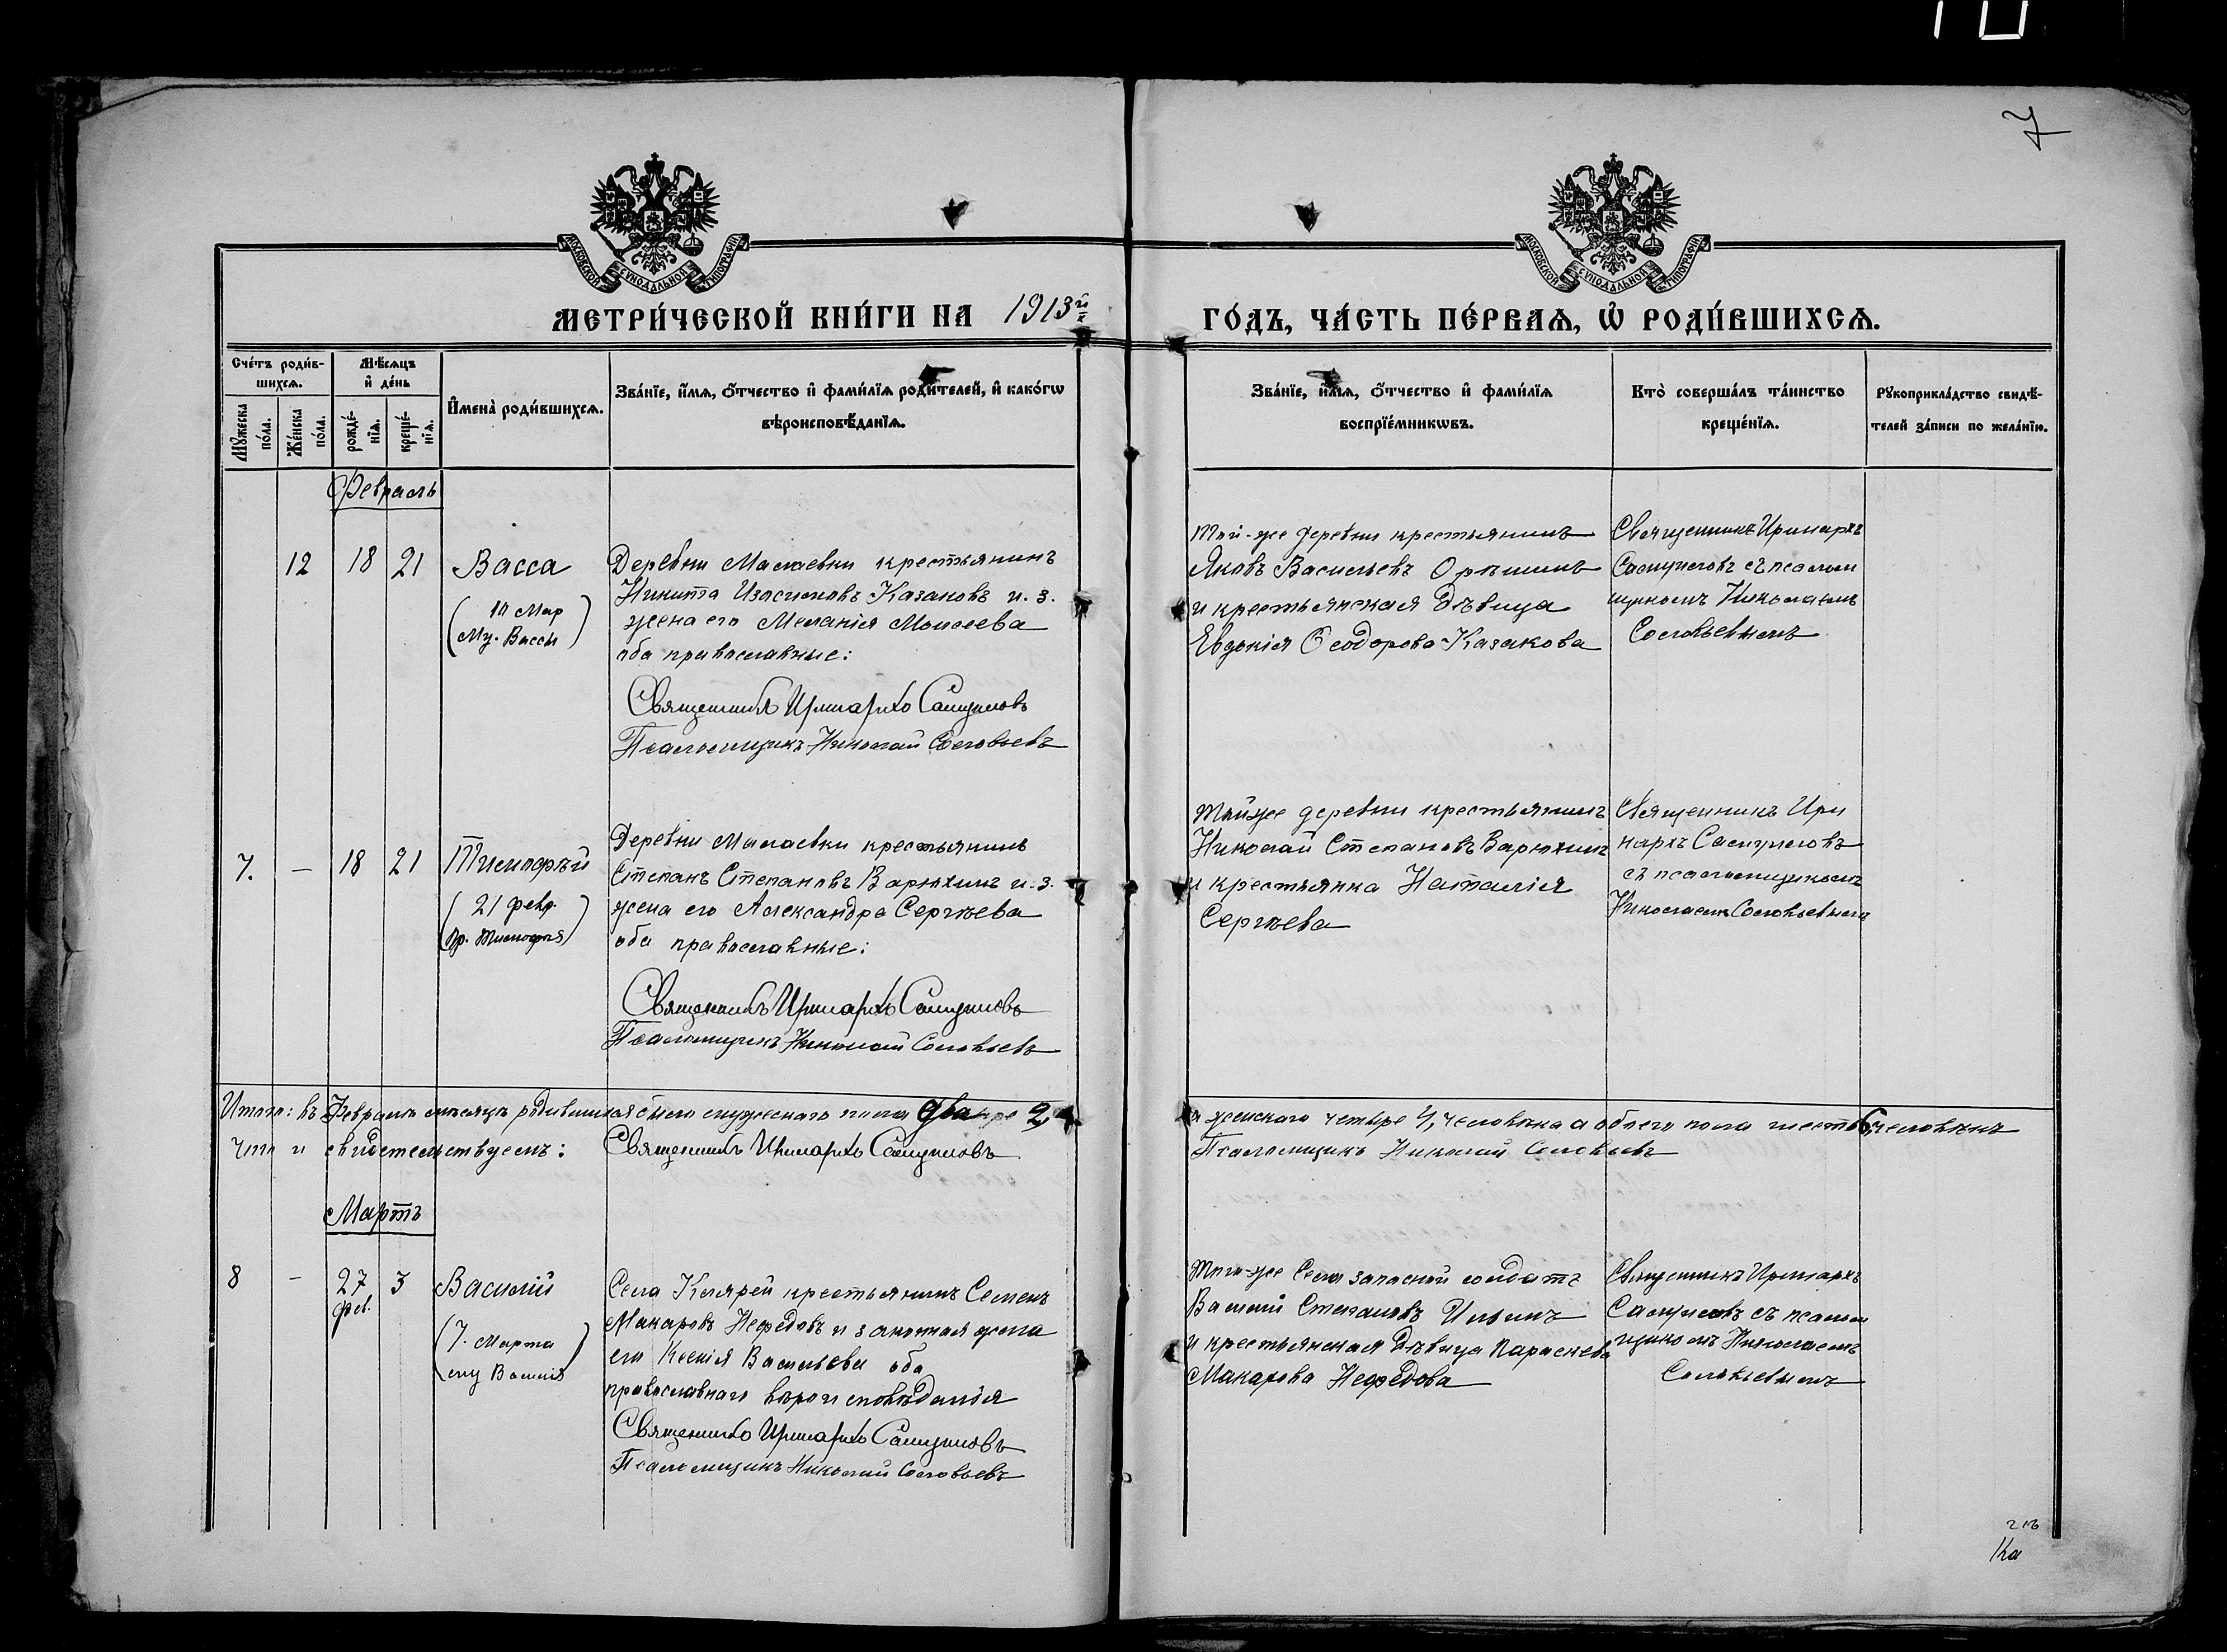 7
МОСКОВСКОЙ СѴНОДАЛЬНОЙ ТИПОГРАФІИ
МОСКОВСКОЙ СѴНОДАЛЬНОЙ ТИПОГРАФІИ
МЕТРИ́ЧЕСКОЙ КНИ́ГИ НА 1913й
ГО́ДЪ, ЧА́СТЬ ПЕ́РВАѦ, Ѡ҆ РОДИ́ВШИХСѦ.
Сче́тъ роди́в-
шихсѧ.
Мꙋжеска
по́ла.
Же́нска
по́ла.
Мѣ́сѧцъ
и҆ де́нь
рожде́-
нїѧ.
креще́-
нїѧ.
И҆мена̀ роди́вшихсѧ.
Зва́нїе, и҆́мѧ, ѻ҆́тчество и҆ фами́лїѧ роди́телей, и҆ како́гѡ
вѣроисповѣ́данїѧ.
Зва́нїе, и҆́мѧ, ѻ҆́тчество и҆ фами́лїѧ
воспрїе́мникѡвъ.
Кто̀ соверша́лъ та́инство
креще́нїѧ.
Рꙋкоприкла́дство свидѣ́-
телей за́писи по жела́нїю.
Февраль
12 18 21 Васса
(10 Мар
Му. Вассы)
Деревни Малаевки крестьянинъ
Никита Изосимовъ Казаковъ и. з.
жена его Меланія Моисеева
оба православные:
Священникъ Иринархъ Самуиловъ
Псаломщикъ Николай Соловьевъ
Той-же деревни крестьянинъ
Яковъ Васильевъ Орѣшинъ
и крестьянская дѣвица
Евдокія Ѳеодорова Казакова
Священникъ Иринархъ
Самуиловъ съ псалом
щикомъ Николаемъ
Соловьевымъ
7. — 18 21 Тимофѣй
(21 февр.
Пр. Тимофея)
Деревни Малаевки крестьянинъ
Степанъ Степановъ Варюхинъ и. з.
жена его Александра Сергѣева
оба православные:
Священникъ Иринархъ Самуиловъ
Псаломщикъ Николай Соловьевъ
Той же деревни крестьянинъ
Николай Степановъ Варюхинъ
и крестьянка Наталія
Сергѣева
Священникъ Ири
нархъ Самуиловъ
съ псаломщикомъ
Николаемъ Соловьевымъ
Итого: въ Февралѣ мѣсяцѣ родившихся было мужескаго пола два 2,
и женскаго четыре 4, человѣка а обоего пола шесть 6, человѣкъ
что и свидетельствуемъ: Священникъ Иринархъ Самуиловъ
Псаломщикъ Николай Соловьевъ
Мартъ
8 — 27 3 Василій
фев.
(7. Марта
Василія)
Села крестьянинъ Семенъ
Макаровъ Нефедовъ и законная жена
его Ксенія Васильева оба
православнаго вѣроисповѣданія
Священникъ Иринархъ Самуиловъ
Псаломщикъ Николай Соловьевъ
Того-же Села запасной солдатъ
Василій Степановъ Ильинъ
и крестьянская дѣвица Параскева
Макарова Нефедова
Священникъ Иринархъ
Самуиловъ съ псалом
щикомъ Николаемъ
Соловьевымъ